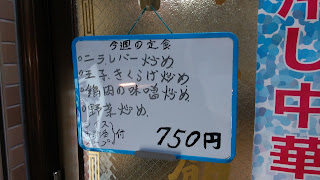 今週の定食
○ニラレバー炒め
○玉子きくらげ炒め
○鶏肉の味噌炒め
○野菜炒め
ライス
スープ
付
750円
冷し中華